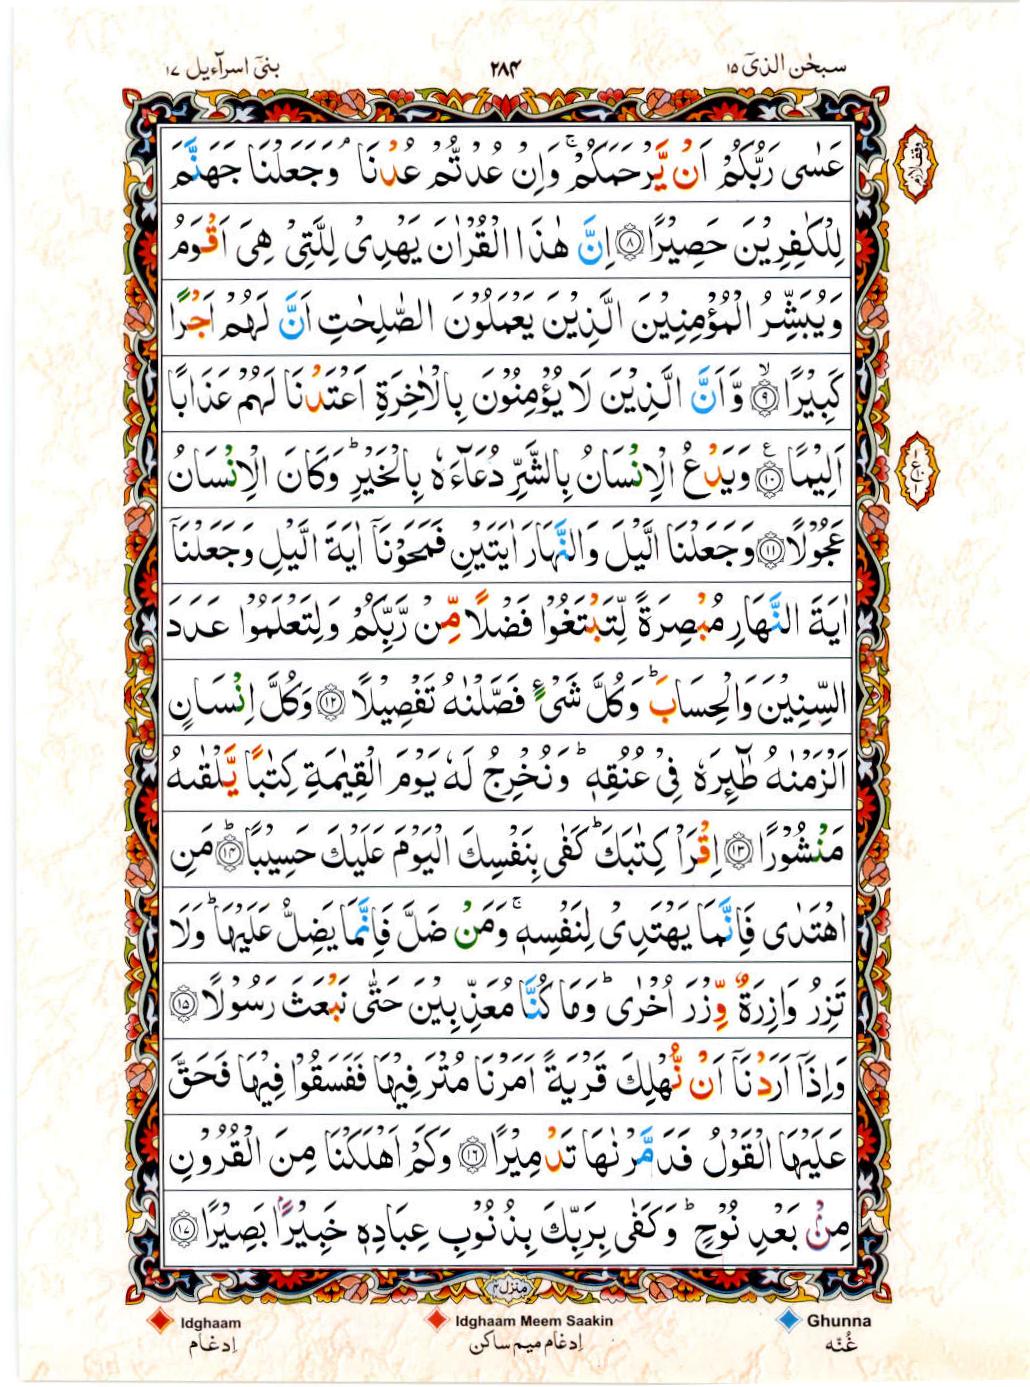 سبحٰن الذیٓ ۱۵
۲۸۴
بنیٓ اسرآءیل ۱۷
عَسٰى رَبُّكُمْ اَنْ يَّرْحَمَكُمْ ۚ وَاِنْ عُدْتُّمْ عُدْنَا ۘ وَجَعَلْنَا جَهَنَّمَ
لِلْكٰفِرِيْنَ حَصِيْرًا ﴿۸﴾ اِنَّ هٰذَا الْقُرْاٰنَ يَهْدِىْ لِلَّتِىْ هِىَ اَقْوَمُ
وَيُبَشِّرُ الْمُؤْمِنِيْنَ الَّذِيْنَ يَعْمَلُوْنَ الصّٰلِحٰتِ اَنَّ لَهُمْ اَجْرًا
كَبِيْرًا ۙ﴿۹﴾ وَّاَنَّ الَّذِيْنَ لَا يُؤْمِنُوْنَ بِالْاٰخِرَةِ اَعْتَدْنَا لَهُمْ عَذَابًا
اَلِيْمًا ﴿۱۰﴾ ع وَيَدْعُ الْاِنْسَانُ بِالشَّرِّ دُعَآءَهٗ بِالْخَيْرِ ؕ وَكَانَ الْاِنْسَانُ
عَجُوْلًا ﴿۱۱﴾ وَجَعَلْنَا الَّيْلَ وَالنَّهَارَ اٰيَتَيْنِ فَمَحَوْنَاۤ اٰيَةَ الَّيْلِ وَجَعَلْنَاۤ
اٰيَةَ النَّهَارِ مُبْصِرَةً لِّتَبْتَغُوْا فَضْلًا مِّنْ رَّبِّكُمْ وَلِتَعْلَمُوْا عَدَدَ
السِّنِيْنَ وَالْحِسَابَ ؕ وَكُلَّ شَىْءٍ فَصَّلْنٰهُ تَفْصِيْلًا ﴿۱۲﴾ وَكُلَّ اِنْسَانٍ
اَلْزَمْنٰهُ طٰٓئِرَهٗ فِىْ عُنُقِهٖ ؕ وَنُخْرِجُ لَهٗ يَوْمَ الْقِيٰمَةِ كِتٰبًا يَّلْقٰىهُ
مَنْشُوْرًا ﴿۱۳﴾ اِقْرَاْ كِتٰبَكَ ؕ كَفٰى بِنَفْسِكَ الْيَوْمَ عَلَيْكَ حَسِيْبًا ؕ﴿۱۴﴾ مَنِ
اهْتَدٰى فَاِنَّمَا يَهْتَدِىْ لِنَفْسِهٖ ۚ وَمَنْ ضَلَّ فَاِنَّمَا يَضِلُّ عَلَيْهَا ؕ وَلَا
تَزِرُ وَازِرَةٌ وِّزْرَ اُخْرٰى ؕ وَمَا كُنَّا مُعَذِّبِيْنَ حَتّٰى نَبْعَثَ رَسُوْلًا ﴿۱۵﴾
وَاِذَاۤ اَرَدْنَاۤ اَنْ نُّهْلِكَ قَرْيَةً اَمَرْنَا مُتْرَفِيْهَا فَفَسَقُوْا فِيْهَا فَحَقَّ
عَلَيْهَا الْقَوْلُ فَدَمَّرْنٰهَا تَدْمِيْرًا ﴿۱۶﴾ وَكَمْ اَهْلَكْنَا مِنَ الْقُرُوْنِ
مِنْۢ بَعْدِ نُوْحٍ ؕ وَكَفٰى بِرَبِّكَ بِذُنُوْبِ عِبَادِهٖ خَبِيْرًۢا بَصِيْرًا ﴿۱۷﴾
منزل ۴
Idghaam
ادغام
Idghaam Meem Saakin
ادغام میم ساکن
Ghunna
غُنّه